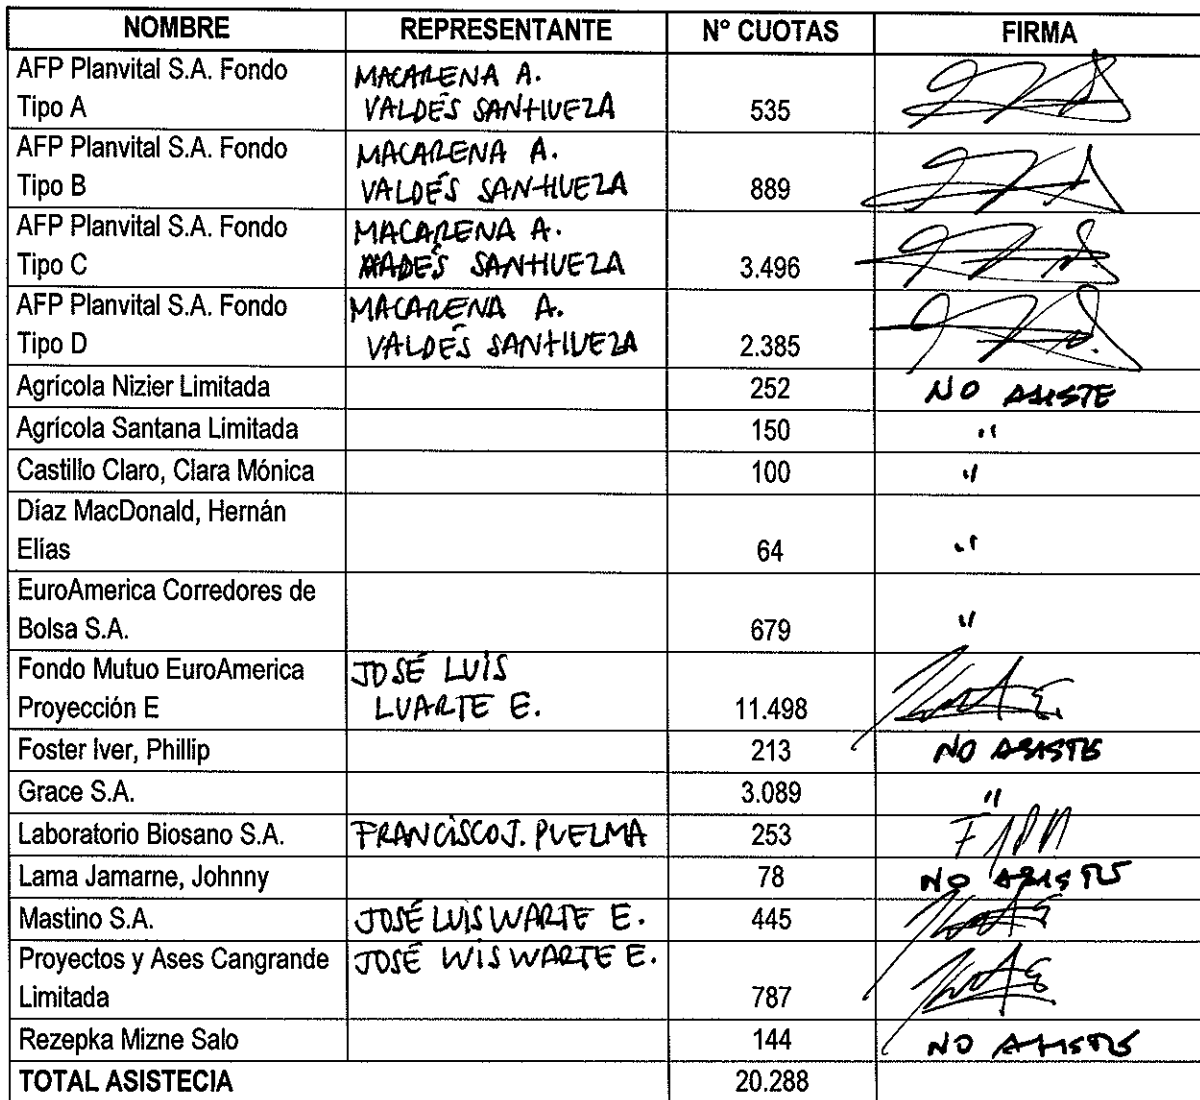 NOMBRE REPRESENTANTE N° CUOTAS FIRMA
AFP Planvital S.A. Fondo MACARENA A.
Tipo A VALDÉS SANHUEZA 535
AFP Planvital S.A. Fondo MACARENA A.
Tipo B VALDÉS SANHUEZA 889
AFP Planvital S.A. Fondo MACARENA A.
Tipo C SANHUEZA 3.496
AFP Planvital S.A. Fondo MACARENA A.
Tipo D VALDÉS SANHUEZA 2.385
Agrícola Nizier Limitada 252 NO ASISTE
Agrícola Santana Limitada 150 "
Castillo Claro, Clara Mónica 100 "
Díaz MacDonald, Hernán
Elías 64 "
EuroAmerica Corredores de
Bolsa S.A. 679 "
Fondo Mutuo EuroAmerica JOSÉ LUIS
Proyección E LUARTE E. 11.498
Foster Iver, Phillip 213 NO ASISTE
Grace S.A. 3.089 "
Laboratorio Biosano S.A. FRANCISCO J. PUELMA 253
Lama Jamarne, Johnny 78 NO ASISTE
Mastino S.A. JOSÉ LUIS LUARTE E. 445
Proyectos y Ases Cangrande JOSÉ LUIS LUARTE E.
Limitada 787
Rezepka Mizne Salo 144 NO ASISTE
TOTAL ASISTECIA 20.288